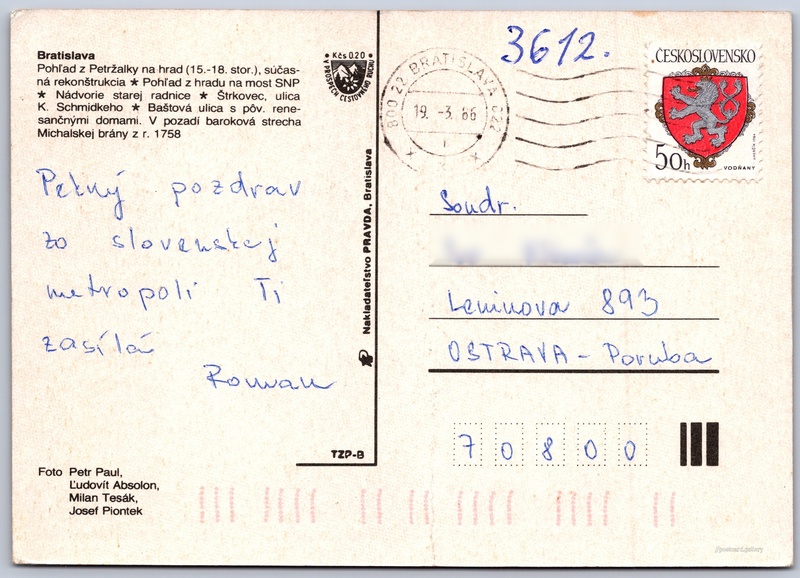 Bratislava
Pohľad z Petržalky na hrad (15.-18. stor.), súčas-
ná rekonštrukcia ★ Pohľad z hradu na most SNP
★ Nádvorie starej radnice ★ Štrkovec, ulica
K. Schmidkeho ★ Baštová ulica s pôv. rene-
sančnými domami. V pozadí baroková strecha
Michalskej brány z r. 1758
Kčs 0,20
V PROSPECH CESTOVNÉHO RUCHU
3612.
800 22 BRATISLAVA 022
19. -3. 86
ČESKOSLOVENSKO
50h
VODŇANY
Pekný pozdrav
zo slovenskej
metropoli Ti
zasílá
Roman
Nakladateľstvo PRAVDA, Bratislava
Soudr.
Leninova 893
OSTRAVA - Poruba
70800
TZP-B
Foto Petr Paul,
Ľudovít Absolon,
Milan Tesák,
Josef Piontek